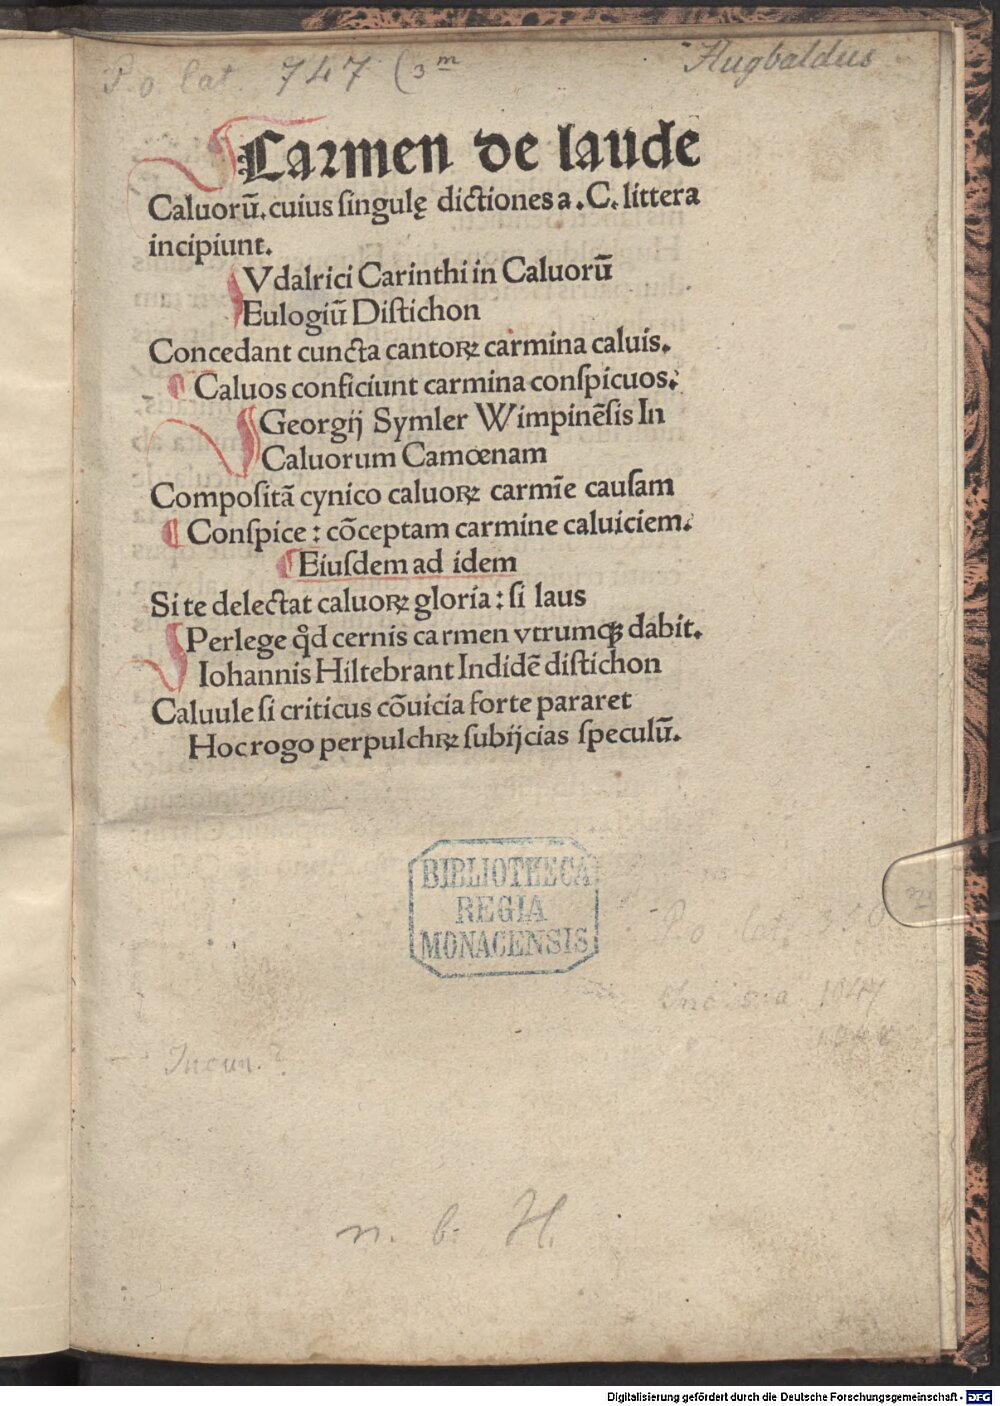 P. o. lat. 747 (3ᵐ
Hugbaldus
Carmen de laude
Caluorū. cuius ſingulę dictiones a .C. littera
incipiunt.
Vdalrici Carinthi in Caluorū
Eulogiū Diſtichon
Concedant cuncta cantoꝝ carmina caluis.
¶ Caluos conficiunt carmina conſpicuos.
Georgij Symler Wimpinēſis In
Caluorum Camœnam
Compoſitā cynico caluoꝝ carmīe cauſam
¶ Conſpice : cōceptam carmine caluiciem.
¶ Eiuſdem ad idem
Si te delectat caluoꝝ gloria : ſi laus
Perlege qd̄ cernis carmen vtrumqꝫ dabit.
Iohannis Hiltebrant Indidē diſtichon
Caluule ſi criticus cōuicia forte pararet
Hoc rogo perpulchꝝ ſubijcias ſpeculū.
BIBLIOTHECA
REGIA
MONACENSIS
P. o. lat.
1047
Incun. ?
n. b. H.
Digitalisierung gefördert durch die Deutsche Forschungsgemeinschaft - DFG